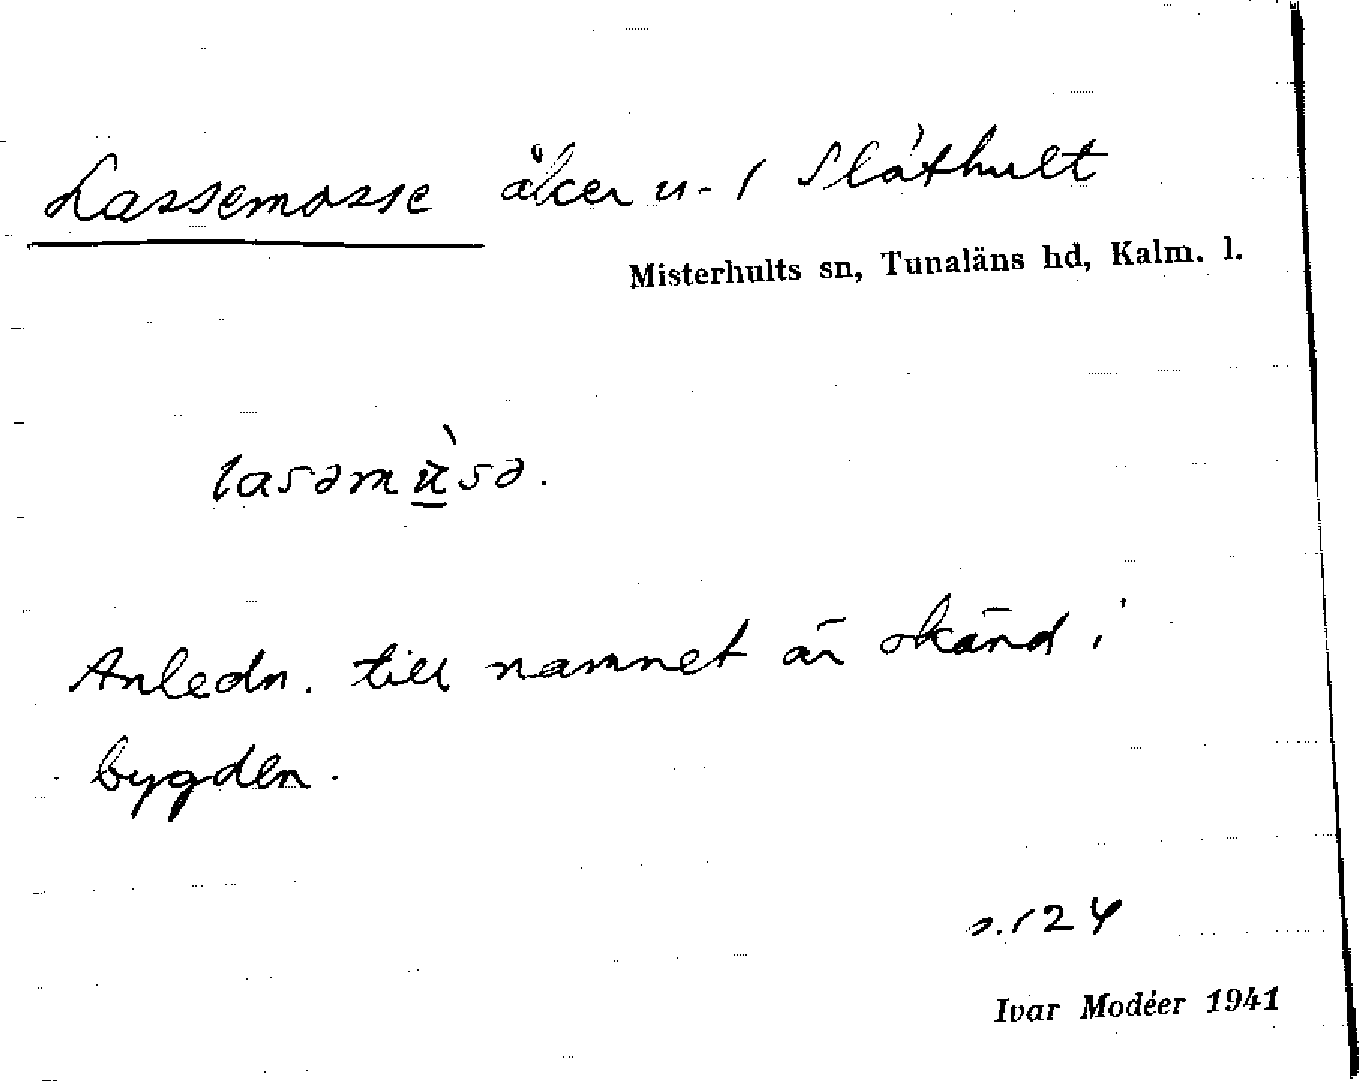 Lassemosse åker u. 1 Slåthult
Misterhults sn, Tunaläns hd, Kalm. l.
lasəmùsə.
Anledn. till namnet är okänd i
bygden.
s. 124
Ivar Modéer 1941